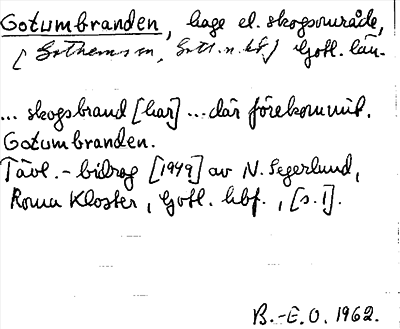 Gotumbranden, hage el. skogsområde,
[Gothems sn, Gotl. n. hd] Gotl. län.
... skogsbrand [har] ... där förekommit.
Gotumbranden.
Tävl.-bidrag [1949] av N. Segerlund,
Roma Kloster, Gotl. hbf., [s. 1].
B.-E.O. 1962.